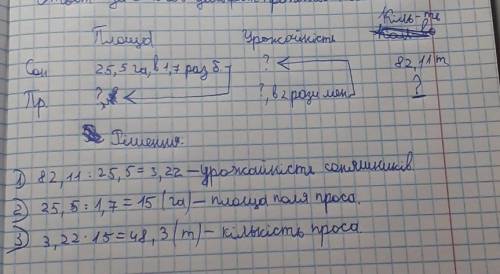 Кіль-ть
Площа Урожайність
Сон 25,5 га, в 1,7 раз б. ? 82,11 т
Пр. ? ?, в 2 рази мен ?
Рішення.
1) 82,11 : 25,5 = 3,22 – урожайність соняшників
2) 25,5 : 1,7 = 15 (га) – площа поля проса.
3) 3,22 · 15 = 48,3 (т) – кількість проса